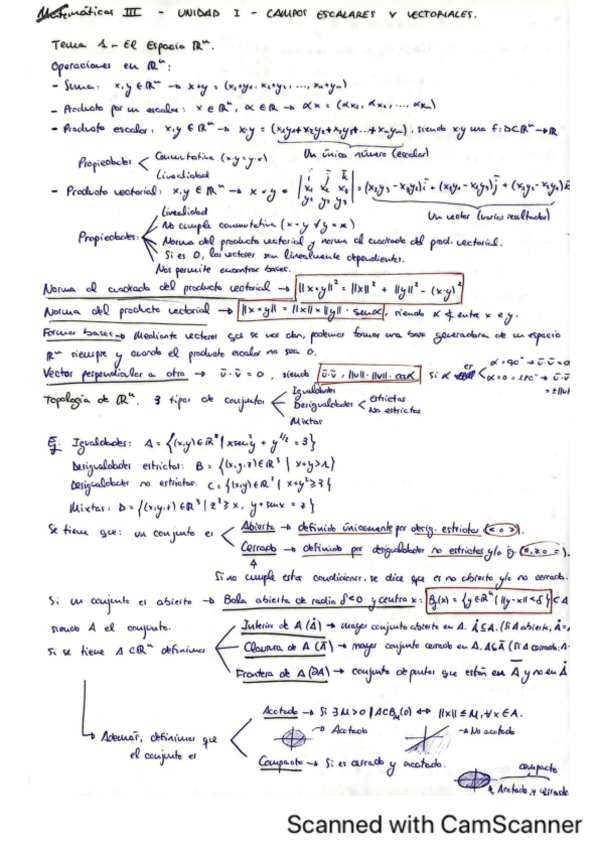 Matemáticas III - UNIDAD I - CAMPOS ESCALARES Y VECTORIALES.
Tema 1 - El Espacio ℝⁿ.
Operaciones en ℝⁿ:
- Suma: x,y ∈ ℝⁿ → x+y = (x₁+y₁, x₂+y₂, ..., xₙ+yₙ)
- Producto por un escalar: x ∈ ℝⁿ, α ∈ ℝ → αx = (αx₁, αx₂, ..., αxₙ)
- Producto escalar: x,y ∈ ℝⁿ → x·y = (x₁y₁+x₂y₂+x₃y₃+...+xₙyₙ), siendo x·y una f: D⊂ℝⁿ → ℝ
Propiedades < Conmutativa (x·y = y·x)
Un único número (escalar)
Linealidad
- Producto vectorial: x,y ∈ ℝⁿ → x × y = | i j k / x₁ x₂ x₃ / y₁ y₂ y₃ | = (x₂y₃ - x₃y₂)i + (x₃y₁ - x₁y₃)j + (x₁y₂ - x₂y₁)k
Un vector (varios resultados)
Propiedades:
Linealidad
No cumple conmutativa (x × y ≠ y × x)
Norma del producto vectorial y norma al cuadrado del prod. vectorial.
Si es 0, los vectores son linealmente dependientes.
Nos permite encontrar bases.
Norma al cuadrado del producto vectorial → ||x × y||² = ||x||² + ||y||² - (x·y)²
Norma del producto vectorial → ||x × y|| = ||x|| × ||y|| · senα, siendo α ∢ entre x e y.
Formar bases → Mediante vectores que se nos dan, podemos formar una base generadora de un espacio
ℝⁿ siempre y cuando el producto escalar no sea 0.
Vector perpendicular a otro → ū·v̄ = 0, siendo ū·v̄ = ||u||·||v||·cosα Si α es < α=90° → ū·v̄=0
α=0=180° → ū·v̄ = ±||u||
Topología de ℝⁿ. 3 tipos de conjuntos <
Igualdades
Desigualdades < Estrictas
No estrictas
Mixtas
Ej: Igualdades: A = {(x,y) ∈ ℝ² | xseny² + y^(1/2) = 3}
Desigualdades estrictas: B = {(x,y,z) ∈ ℝ³ | x+y>1}
Desigualdades no estrictas: C = {(x,y) ∈ ℝ² | x+y² ≥ 3}
Mixtas: D = {(x,y,z) ∈ ℝ³ | z² ≥ x, y+senx = z}
Se tiene que: un conjunto es <
Abierto → definido únicamente por desig. estrictas (< o >).
Cerrado → definido por desigualdades no estrictas y/o ig. (≤, ≥ o =).
Si no cumple estas condiciones, se dice que es no abierto y/o no cerrado.
Si un conjunto es abierto → Bola abierta de radio δ<0 y centro x: B_δ(x) = {y ∈ ℝⁿ | ||y-x|| < δ} ⊂ A
siendo A el conjunto.
Si se tiene A ⊂ ℝⁿ definimos <
Interior de A (Å) → mayor conjunto abierto en A. Å ⊆ A. (Si A abierto, Å =
Clausura de A (Ā) → mayor conjunto cerrado en A. A ⊆ Ā (Si A cerrado: A
Frontera de A (∂A) → conjunto de puntos que están en Ā y no en Å
Además, definimos que el conjunto es <
Acotado → Si ∃ M>0 | A⊂B_M(0) ↔ ||x|| ≤ M, ∀x ∈ A.
→ Acotado → No acotado
Compacto → Si es cerrado y acotado.
compacto
Acotado y cerrado
Scanned with CamScanner